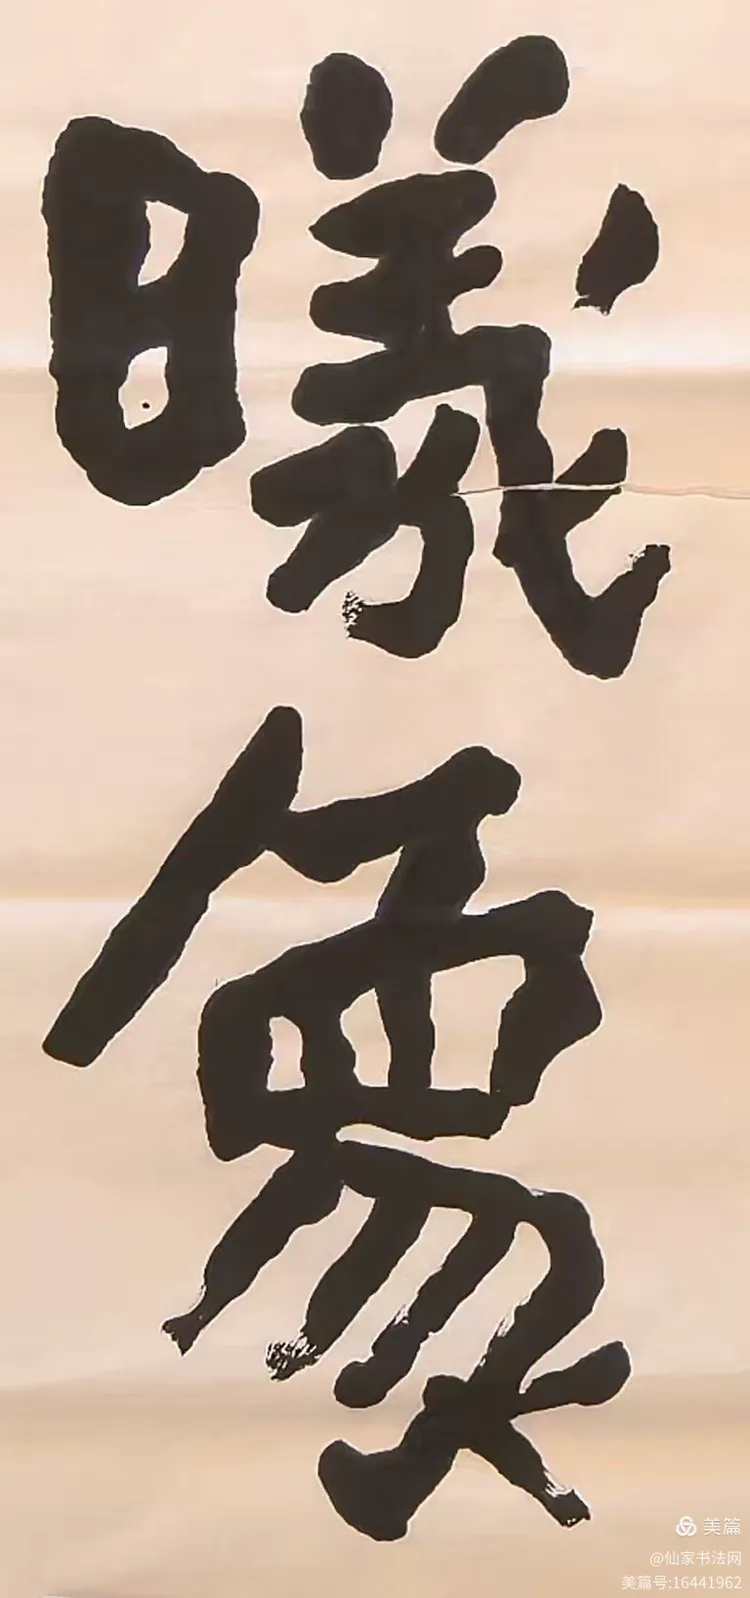 曦
象
美篇
@仙家书法网
美篇号:16441962